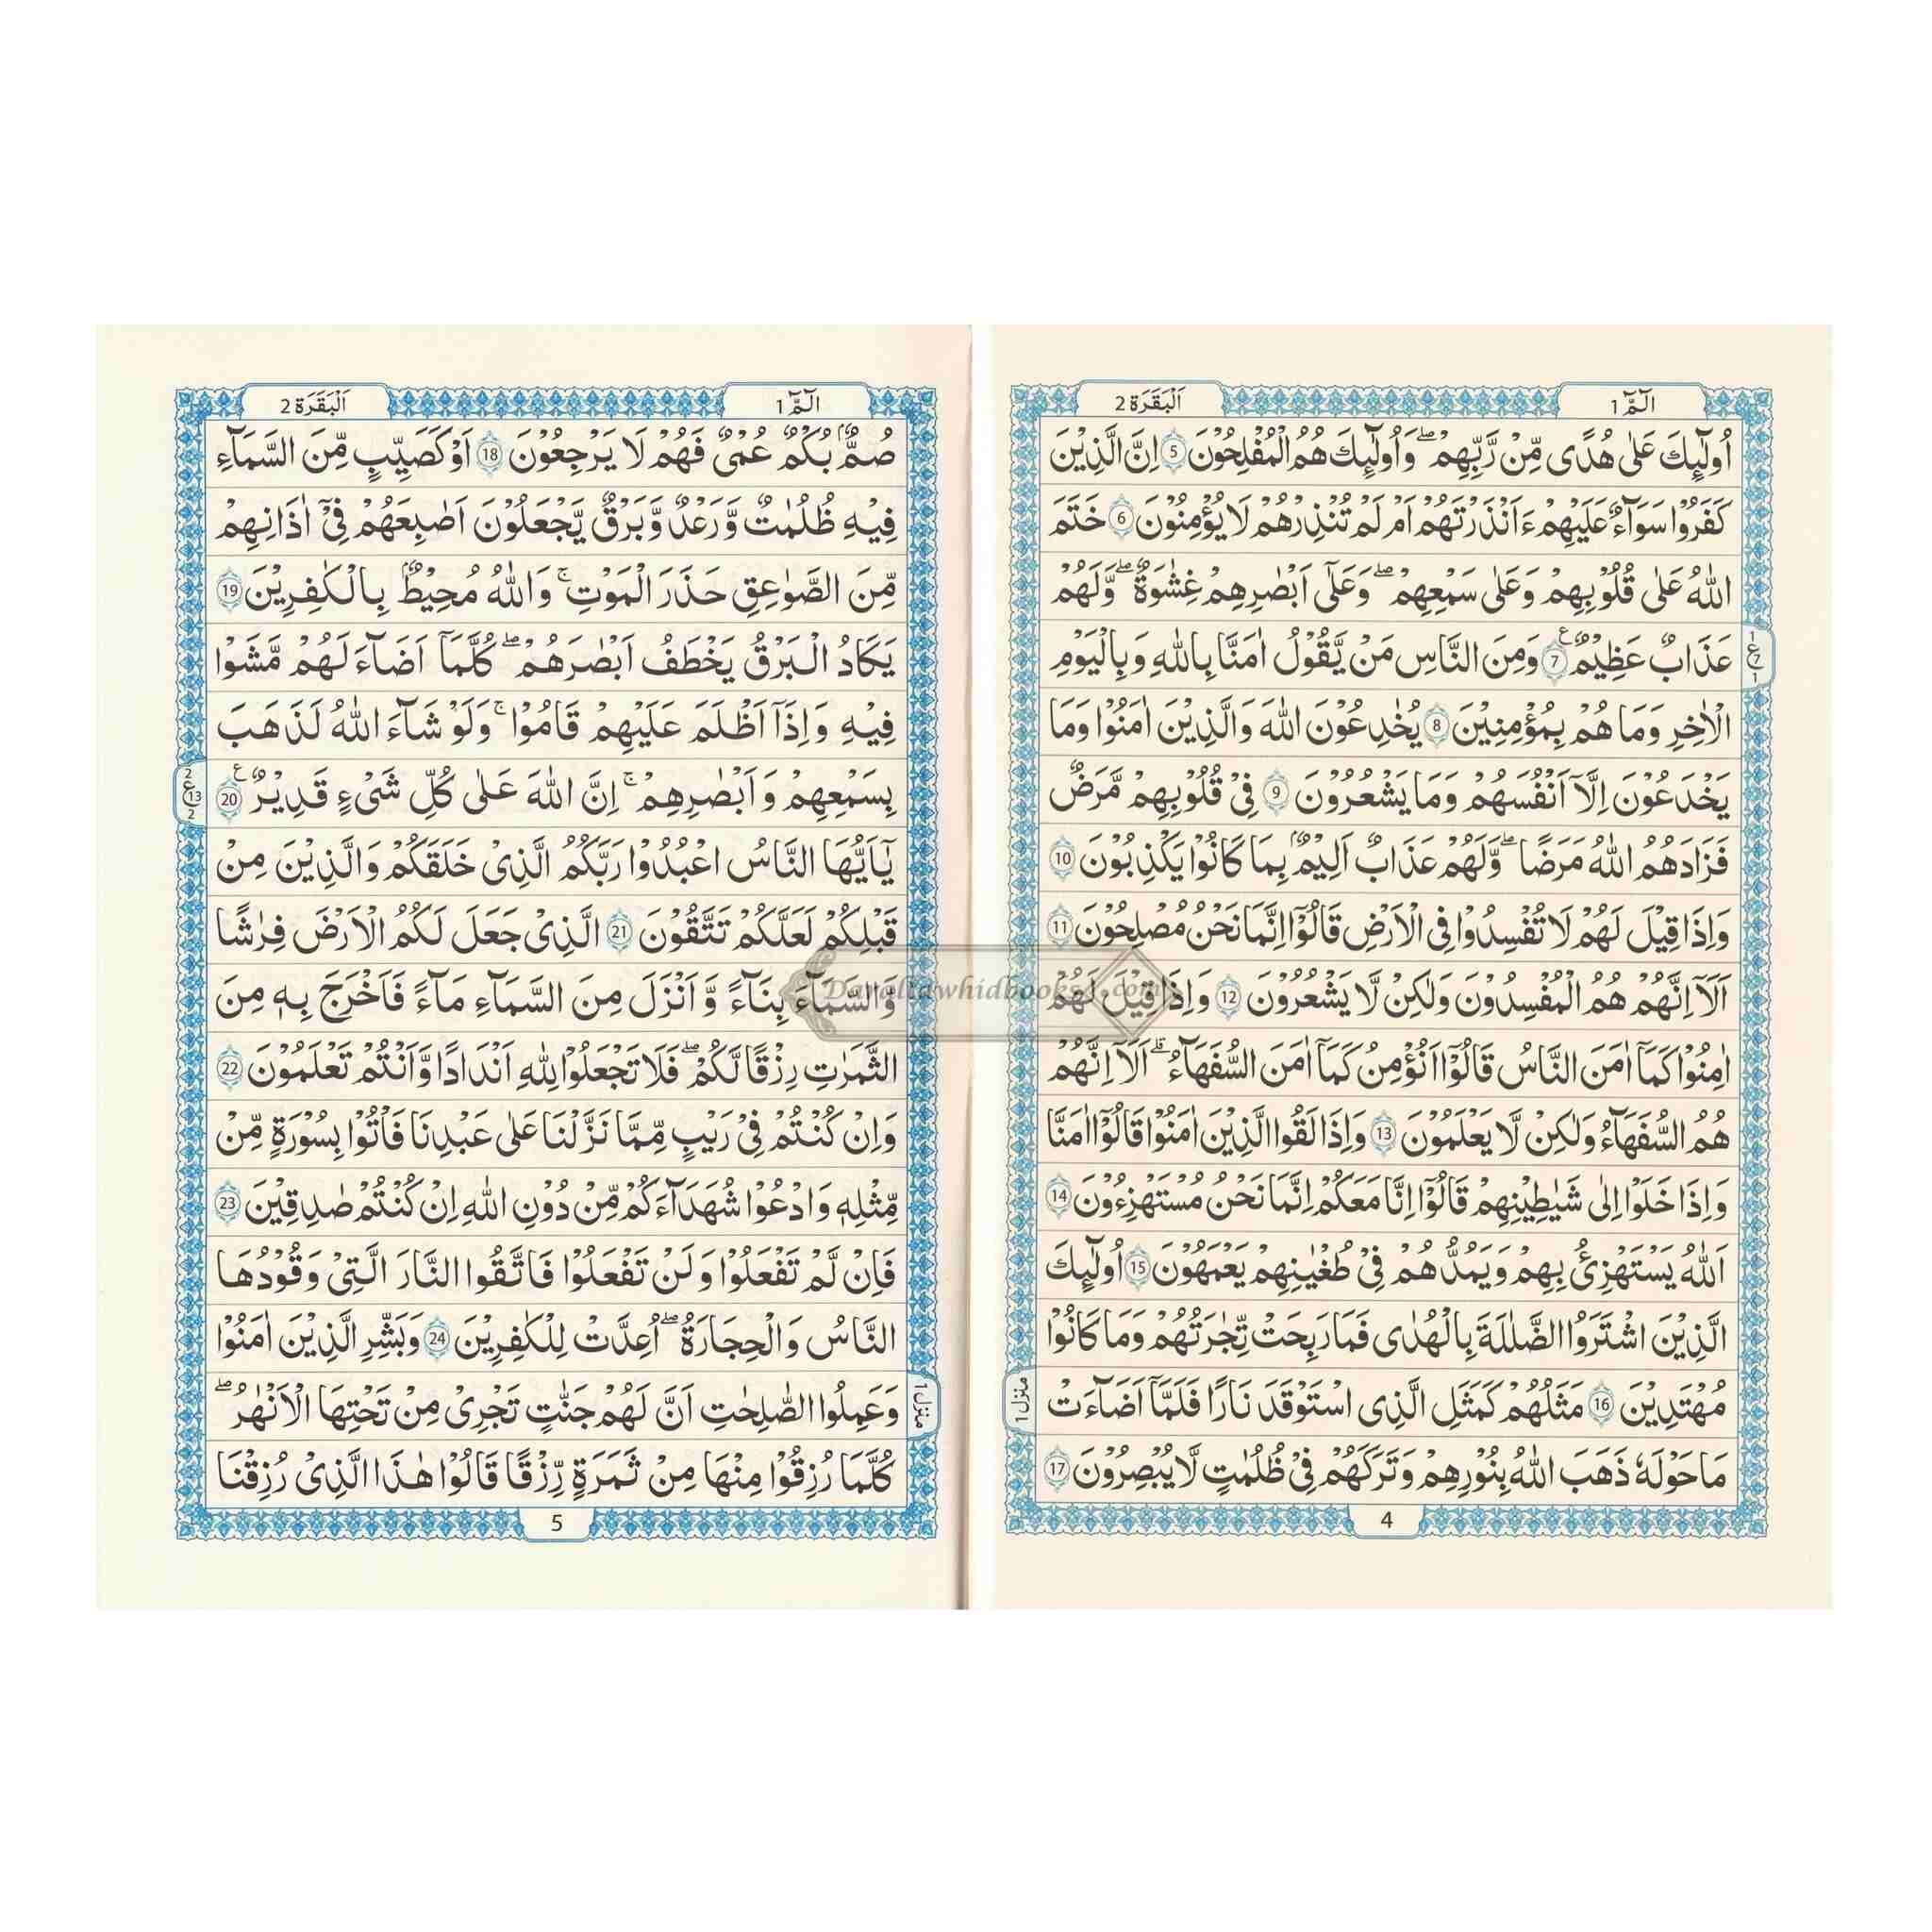 الٓمّٓ 1
اَلْبَقَرَة 2
اُولٰٓئِكَ عَلٰى هُدًى مِّنْ رَّبِّهِمْ ۖ وَاُولٰٓئِكَ هُمُ الْمُفْلِحُوْنَ 5 اِنَّ الَّذِيْنَ
كَفَرُوْا سَوَآءٌ عَلَيْهِمْ ءَاَنْذَرْتَهُمْ اَمْ لَمْ تُنْذِرْهُمْ لَا يُؤْمِنُوْنَ 6 خَتَمَ
اللّٰهُ عَلٰى قُلُوْبِهِمْ وَعَلٰى سَمْعِهِمْ ۖ وَعَلٰٓى اَبْصٰرِهِمْ غِشٰوَةٌ ۖ وَّلَهُمْ
عَذَابٌ عَظِيْمٌ 7 وَمِنَ النَّاسِ مَنْ يَّقُوْلُ اٰمَنَّا بِاللّٰهِ وَبِالْيَوْمِ
الْاٰخِرِ وَمَا هُمْ بِمُؤْمِنِيْنَ 8 يُخٰدِعُوْنَ اللّٰهَ وَالَّذِيْنَ اٰمَنُوْا وَمَا
يَخْدَعُوْنَ اِلَّآ اَنْفُسَهُمْ وَمَا يَشْعُرُوْنَ 9 فِىْ قُلُوْبِهِمْ مَّرَضٌ
فَزَادَهُمُ اللّٰهُ مَرَضًا ۖ وَّلَهُمْ عَذَابٌ اَلِيْمٌۢ بِمَا كَانُوْا يَكْذِبُوْنَ 10
وَاِذَا قِيْلَ لَهُمْ لَا تُفْسِدُوْا فِى الْاَرْضِ قَالُوْٓا اِنَّمَا نَحْنُ مُصْلِحُوْنَ 11
اَلَآ اِنَّهُمْ هُمُ الْمُفْسِدُوْنَ وَلٰكِنْ لَّا يَشْعُرُوْنَ 12 وَاِذَا قِيْلَ لَهُمْ
اٰمِنُوْا كَمَآ اٰمَنَ النَّاسُ قَالُوْٓا اَنُؤْمِنُ كَمَآ اٰمَنَ السُّفَهَآءُ ۗ اَلَآ اِنَّهُمْ
هُمُ السُّفَهَآءُ وَلٰكِنْ لَّا يَعْلَمُوْنَ 13 وَاِذَا لَقُوا الَّذِيْنَ اٰمَنُوْا قَالُوْٓا اٰمَنَّا
وَاِذَا خَلَوْا اِلٰى شَيٰطِيْنِهِمْ قَالُوْٓا اِنَّا مَعَكُمْ اِنَّمَا نَحْنُ مُسْتَهْزِءُوْنَ 14
اَللّٰهُ يَسْتَهْزِئُ بِهِمْ وَيَمُدُّهُمْ فِىْ طُغْيٰنِهِمْ يَعْمَهُوْنَ 15 اُولٰٓئِكَ
الَّذِيْنَ اشْتَرَوُا الضَّلٰلَةَ بِالْهُدٰى فَمَا رَبِحَتْ تِّجٰرَتُهُمْ وَمَا كَانُوْا
مُهْتَدِيْنَ 16 مَثَلُهُمْ كَمَثَلِ الَّذِى اسْتَوْقَدَ نَارًا فَلَمَّآ اَضَآءَتْ
مَا حَوْلَهٗ ذَهَبَ اللّٰهُ بِنُوْرِهِمْ وَتَرَكَهُمْ فِىْ ظُلُمٰتٍ لَّا يُبْصِرُوْنَ 17
1 ع 7 1
منزل 1
4
الٓمّٓ 1
اَلْبَقَرَة 2
صُمٌّۢ بُكْمٌ عُمْىٌ فَهُمْ لَا يَرْجِعُوْنَ 18 اَوْ كَصَيِّبٍ مِّنَ السَّمَآءِ
فِيْهِ ظُلُمٰتٌ وَّرَعْدٌ وَّبَرْقٌ يَّجْعَلُوْنَ اَصٰبِعَهُمْ فِىْٓ اٰذَانِهِمْ
مِّنَ الصَّوٰعِقِ حَذَرَ الْمَوْتِ ۚ وَاللّٰهُ مُحِيْطٌۢ بِالْكٰفِرِيْنَ 19
يَكَادُ الْبَرْقُ يَخْطَفُ اَبْصٰرَهُمْ ۖ كُلَّمَآ اَضَآءَ لَهُمْ مَّشَوْا
فِيْهِ وَاِذَآ اَظْلَمَ عَلَيْهِمْ قَامُوْا ۚ وَلَوْ شَآءَ اللّٰهُ لَذَهَبَ
بِسَمْعِهِمْ وَاَبْصٰرِهِمْ ۚ اِنَّ اللّٰهَ عَلٰى كُلِّ شَىْءٍ قَدِيْرٌ 20
يٰٓاَيُّهَا النَّاسُ اعْبُدُوْا رَبَّكُمُ الَّذِىْ خَلَقَكُمْ وَالَّذِيْنَ مِنْ
قَبْلِكُمْ لَعَلَّكُمْ تَتَّقُوْنَ 21 الَّذِىْ جَعَلَ لَكُمُ الْاَرْضَ فِرٰشًا
وَّالسَّمَآءَ بِنَآءً وَّاَنْزَلَ مِنَ السَّمَآءِ مَآءً فَاَخْرَجَ بِهٖ مِنَ
الثَّمَرٰتِ رِزْقًا لَّكُمْ ۖ فَلَا تَجْعَلُوْا لِلّٰهِ اَنْدَادًا وَّاَنْتُمْ تَعْلَمُوْنَ 22
وَاِنْ كُنْتُمْ فِىْ رَيْبٍ مِّمَّا نَزَّلْنَا عَلٰى عَبْدِنَا فَاْتُوْا بِسُوْرَةٍ مِّنْ
مِّثْلِهٖ وَادْعُوْا شُهَدَآءَكُمْ مِّنْ دُوْنِ اللّٰهِ اِنْ كُنْتُمْ صٰدِقِيْنَ 23
فَاِنْ لَّمْ تَفْعَلُوْا وَلَنْ تَفْعَلُوْا فَاتَّقُوا النَّارَ الَّتِىْ وَقُوْدُهَا
النَّاسُ وَالْحِجَارَةُ ۖ اُعِدَّتْ لِلْكٰفِرِيْنَ 24 وَبَشِّرِ الَّذِيْنَ اٰمَنُوْا
وَعَمِلُوا الصّٰلِحٰتِ اَنَّ لَهُمْ جَنّٰتٍ تَجْرِىْ مِنْ تَحْتِهَا الْاَنْهٰرُ ۖ
كُلَّمَا رُزِقُوْا مِنْهَا مِنْ ثَمَرَةٍ رِّزْقًا قَالُوْا هٰذَا الَّذِىْ رُزِقْنَا
2 ع 13 2
منزل 1
5